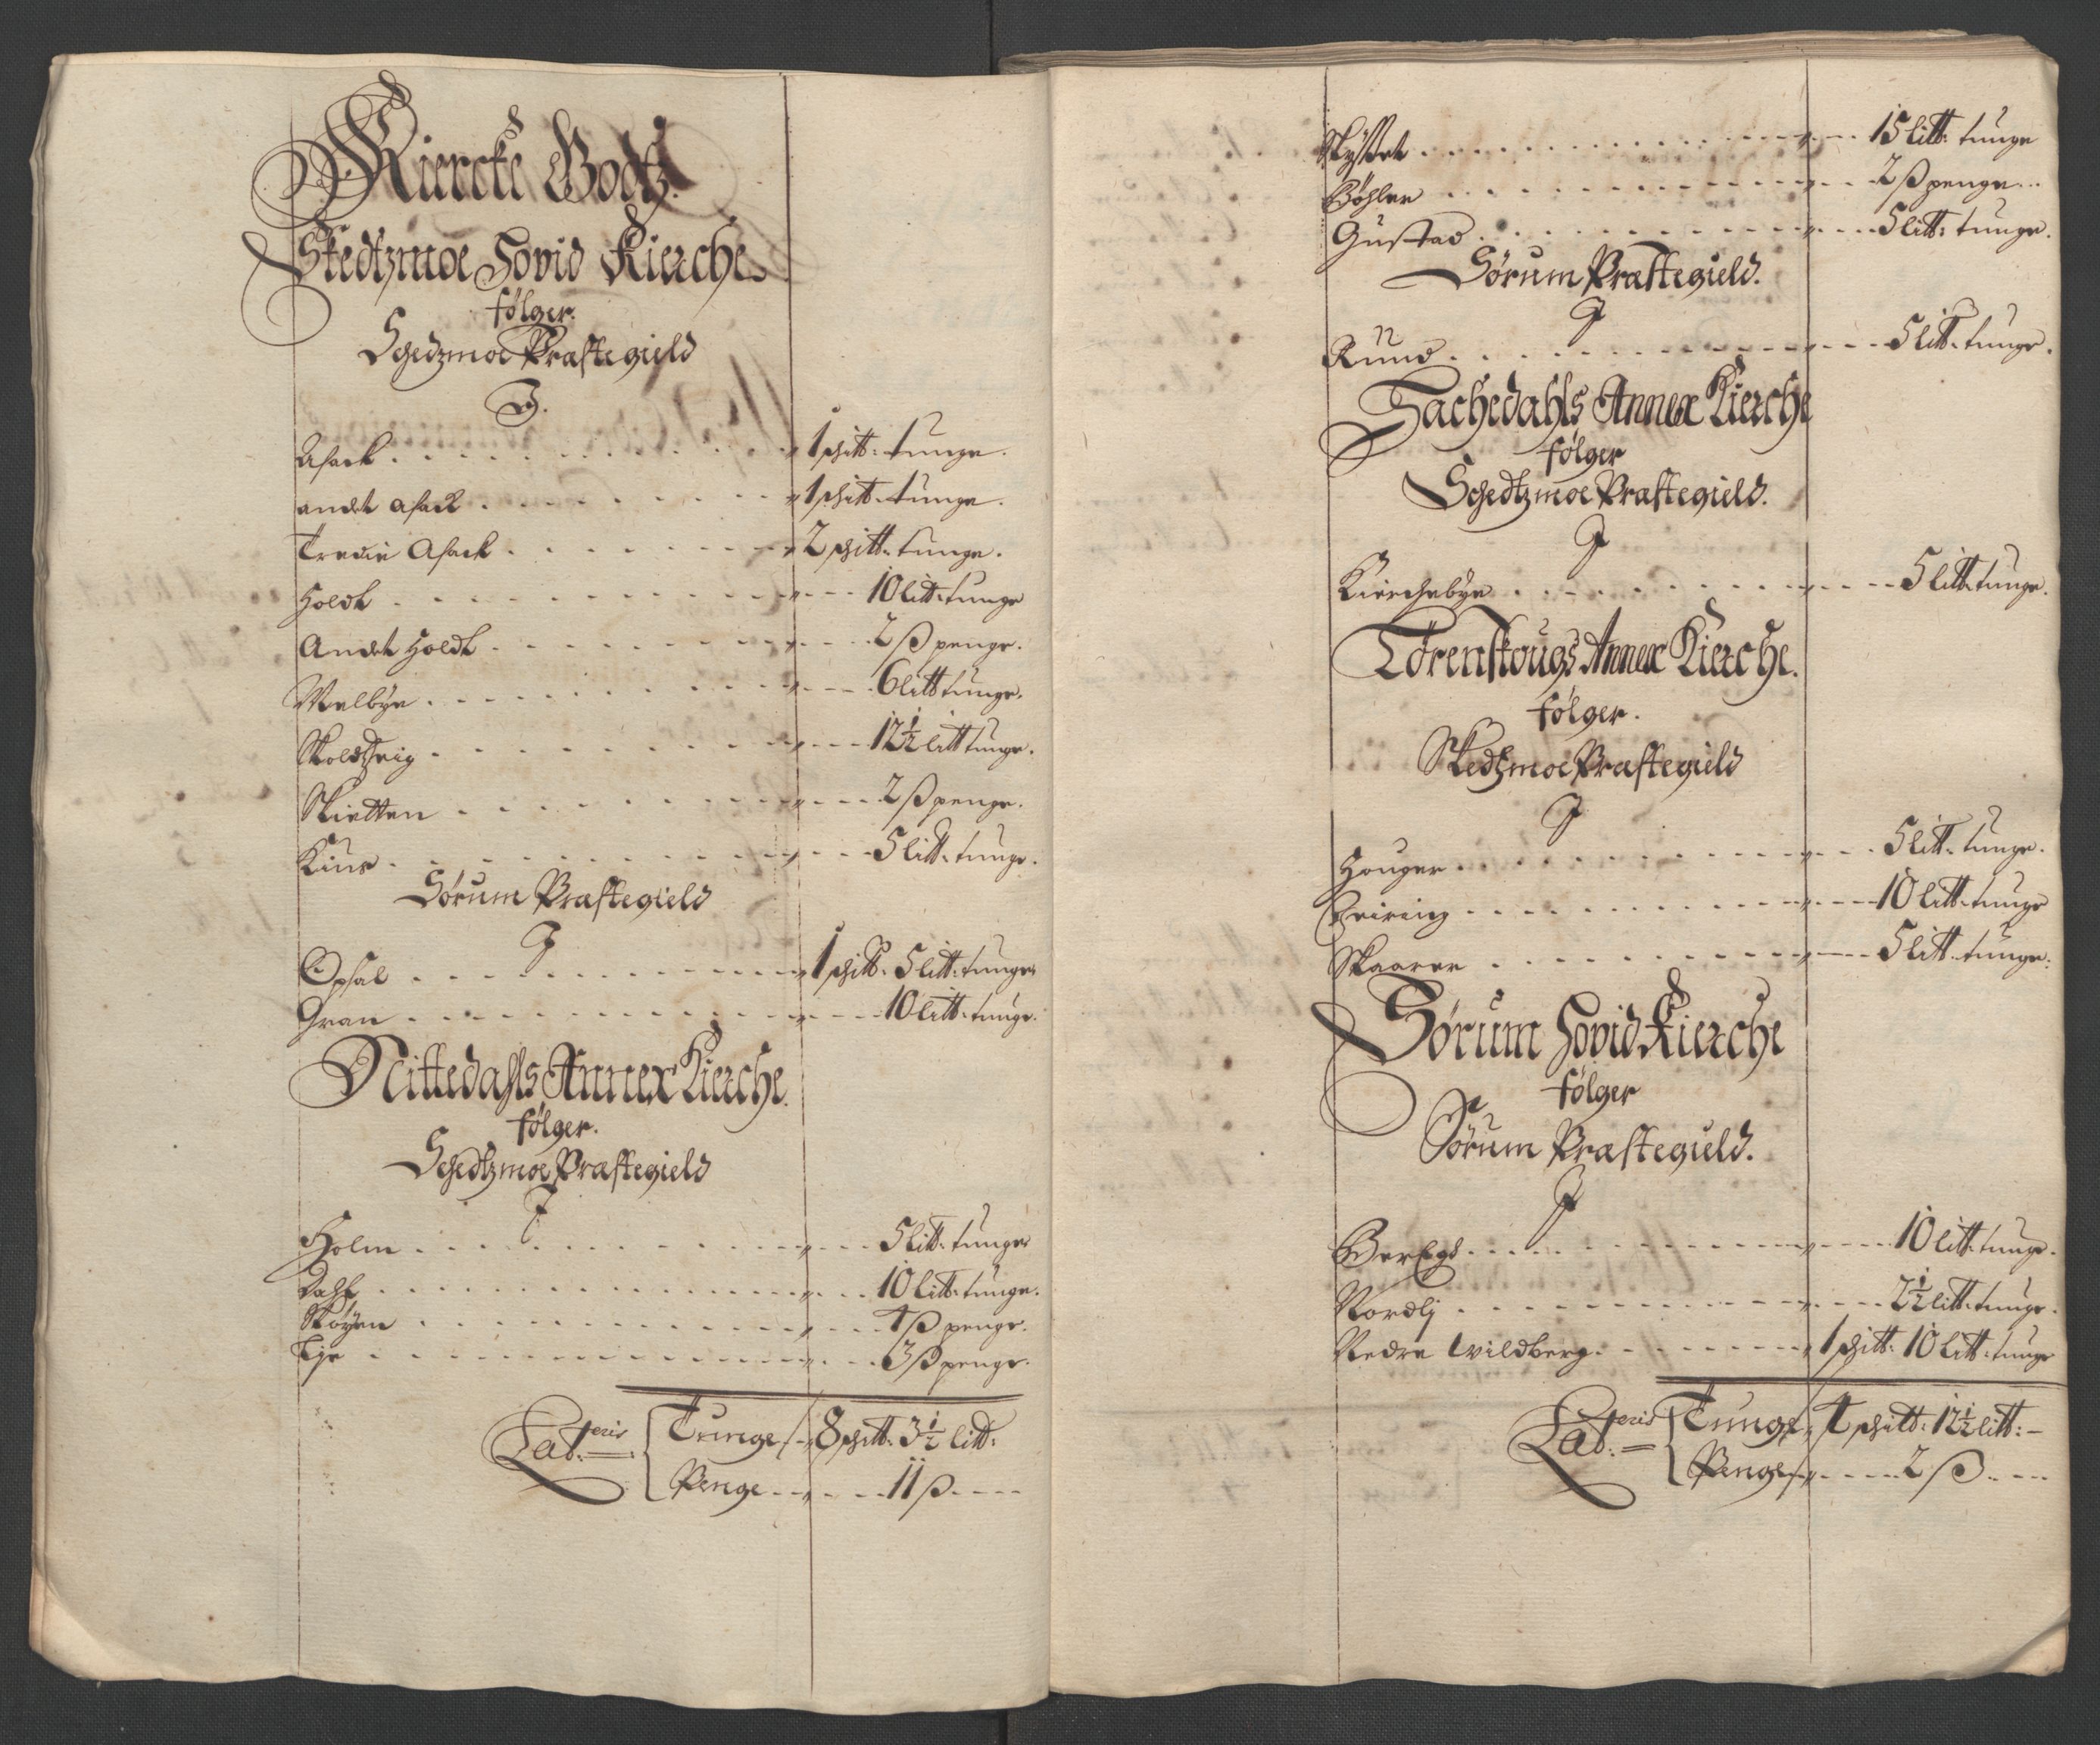 Kiercke Godtz.
Skedtzmoe Hovid Kierche
følger.
Schedzmoe Præstegield
J.
Asack . . . 1 schitt: tunge.
andet asack . . . 1 schitt: tunge.
Tredie Asack . . . 2 schitt: tunge.
Holdt . . . 10 litt: tunge
Andet Holdt . . . 2 ß penge.
Welbye . . . 6 litt tunge.
Skoldtzvig . . . 12½ litt tunge.
Skietten . . . 2 ß penge.
Kius . . . 5 litt: tunge.
Sørum Præstegield
J
Opsal . . . 1 schitt: 5 litt: tunge
Gran . . . 10 litt: tunge.
Nittedahls Annex Kierche.
følger.
Schedtzmoe Præstegield
J
Holm . . . 5 litt: tunge
Dahl . . . 10 litt: tunge.
Skøyen . . . 4 ß penge.
Tye . . . 3 ß penge.
Lat:eris Tunge 8 schitt: 3½ litt:
Penge . . . 11 ß
. . . 15 litt: tunge
Bøhler . . . 2 ß penge
Gustad . . . 5 litt: tunge.
Sørum Præstegield.
J
Rund . . . 5 litt: tunge.
Hachedahls Annex Kierche
følger
Schedtzmoe Præstegield.
J
Kierchebye . . . 5 litt: tunge.
Lørenskougs Annex Kierche.
følger.
Skedtzmoe Præstegield
J
Houger . . . 5 litt: tunge.
. . . 10 litt: tunge
Skaarer . . . 5 litt: tunge.
Sørum Hovid Kierche
følger
Sørum Præstegield.
J
Berlgd . . . 10 litt: tunge.
Nordlj . . . 2½ litt: tunge.
Nedre Wildberg . . . 1 schitt: 10 litt: tunge
Lat:eris Tunge 4 schitt: 12½ litt:
Penge . . . 2 ß